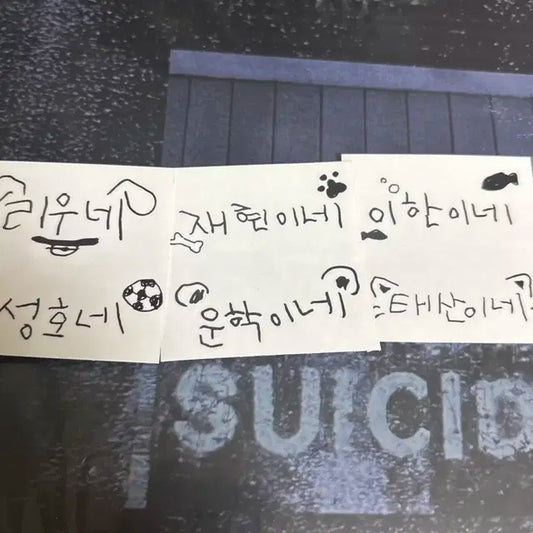 리우네
재현이네
이한이네
성호네
운학이네
태산이네
SUICID